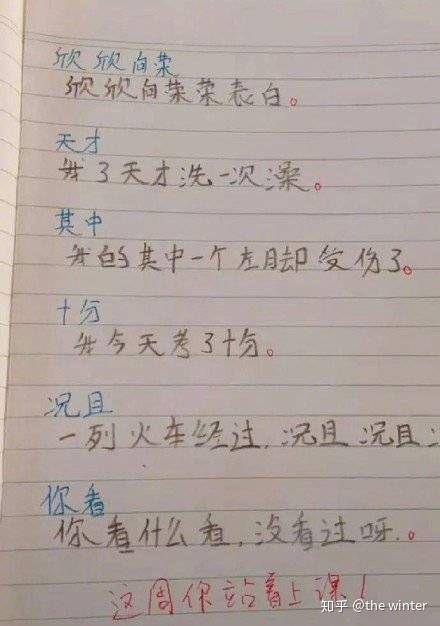 欣欣向荣
欣欣向荣荣表白。
天才
我3天才洗一次澡。
其中
我的其中一个左脚受伤了。
十分
我今天考了十分。
况且
一列火车经过,况且况且
你看
你看什么看,没看过呀。
这周你站着上课!
知乎 @the winter